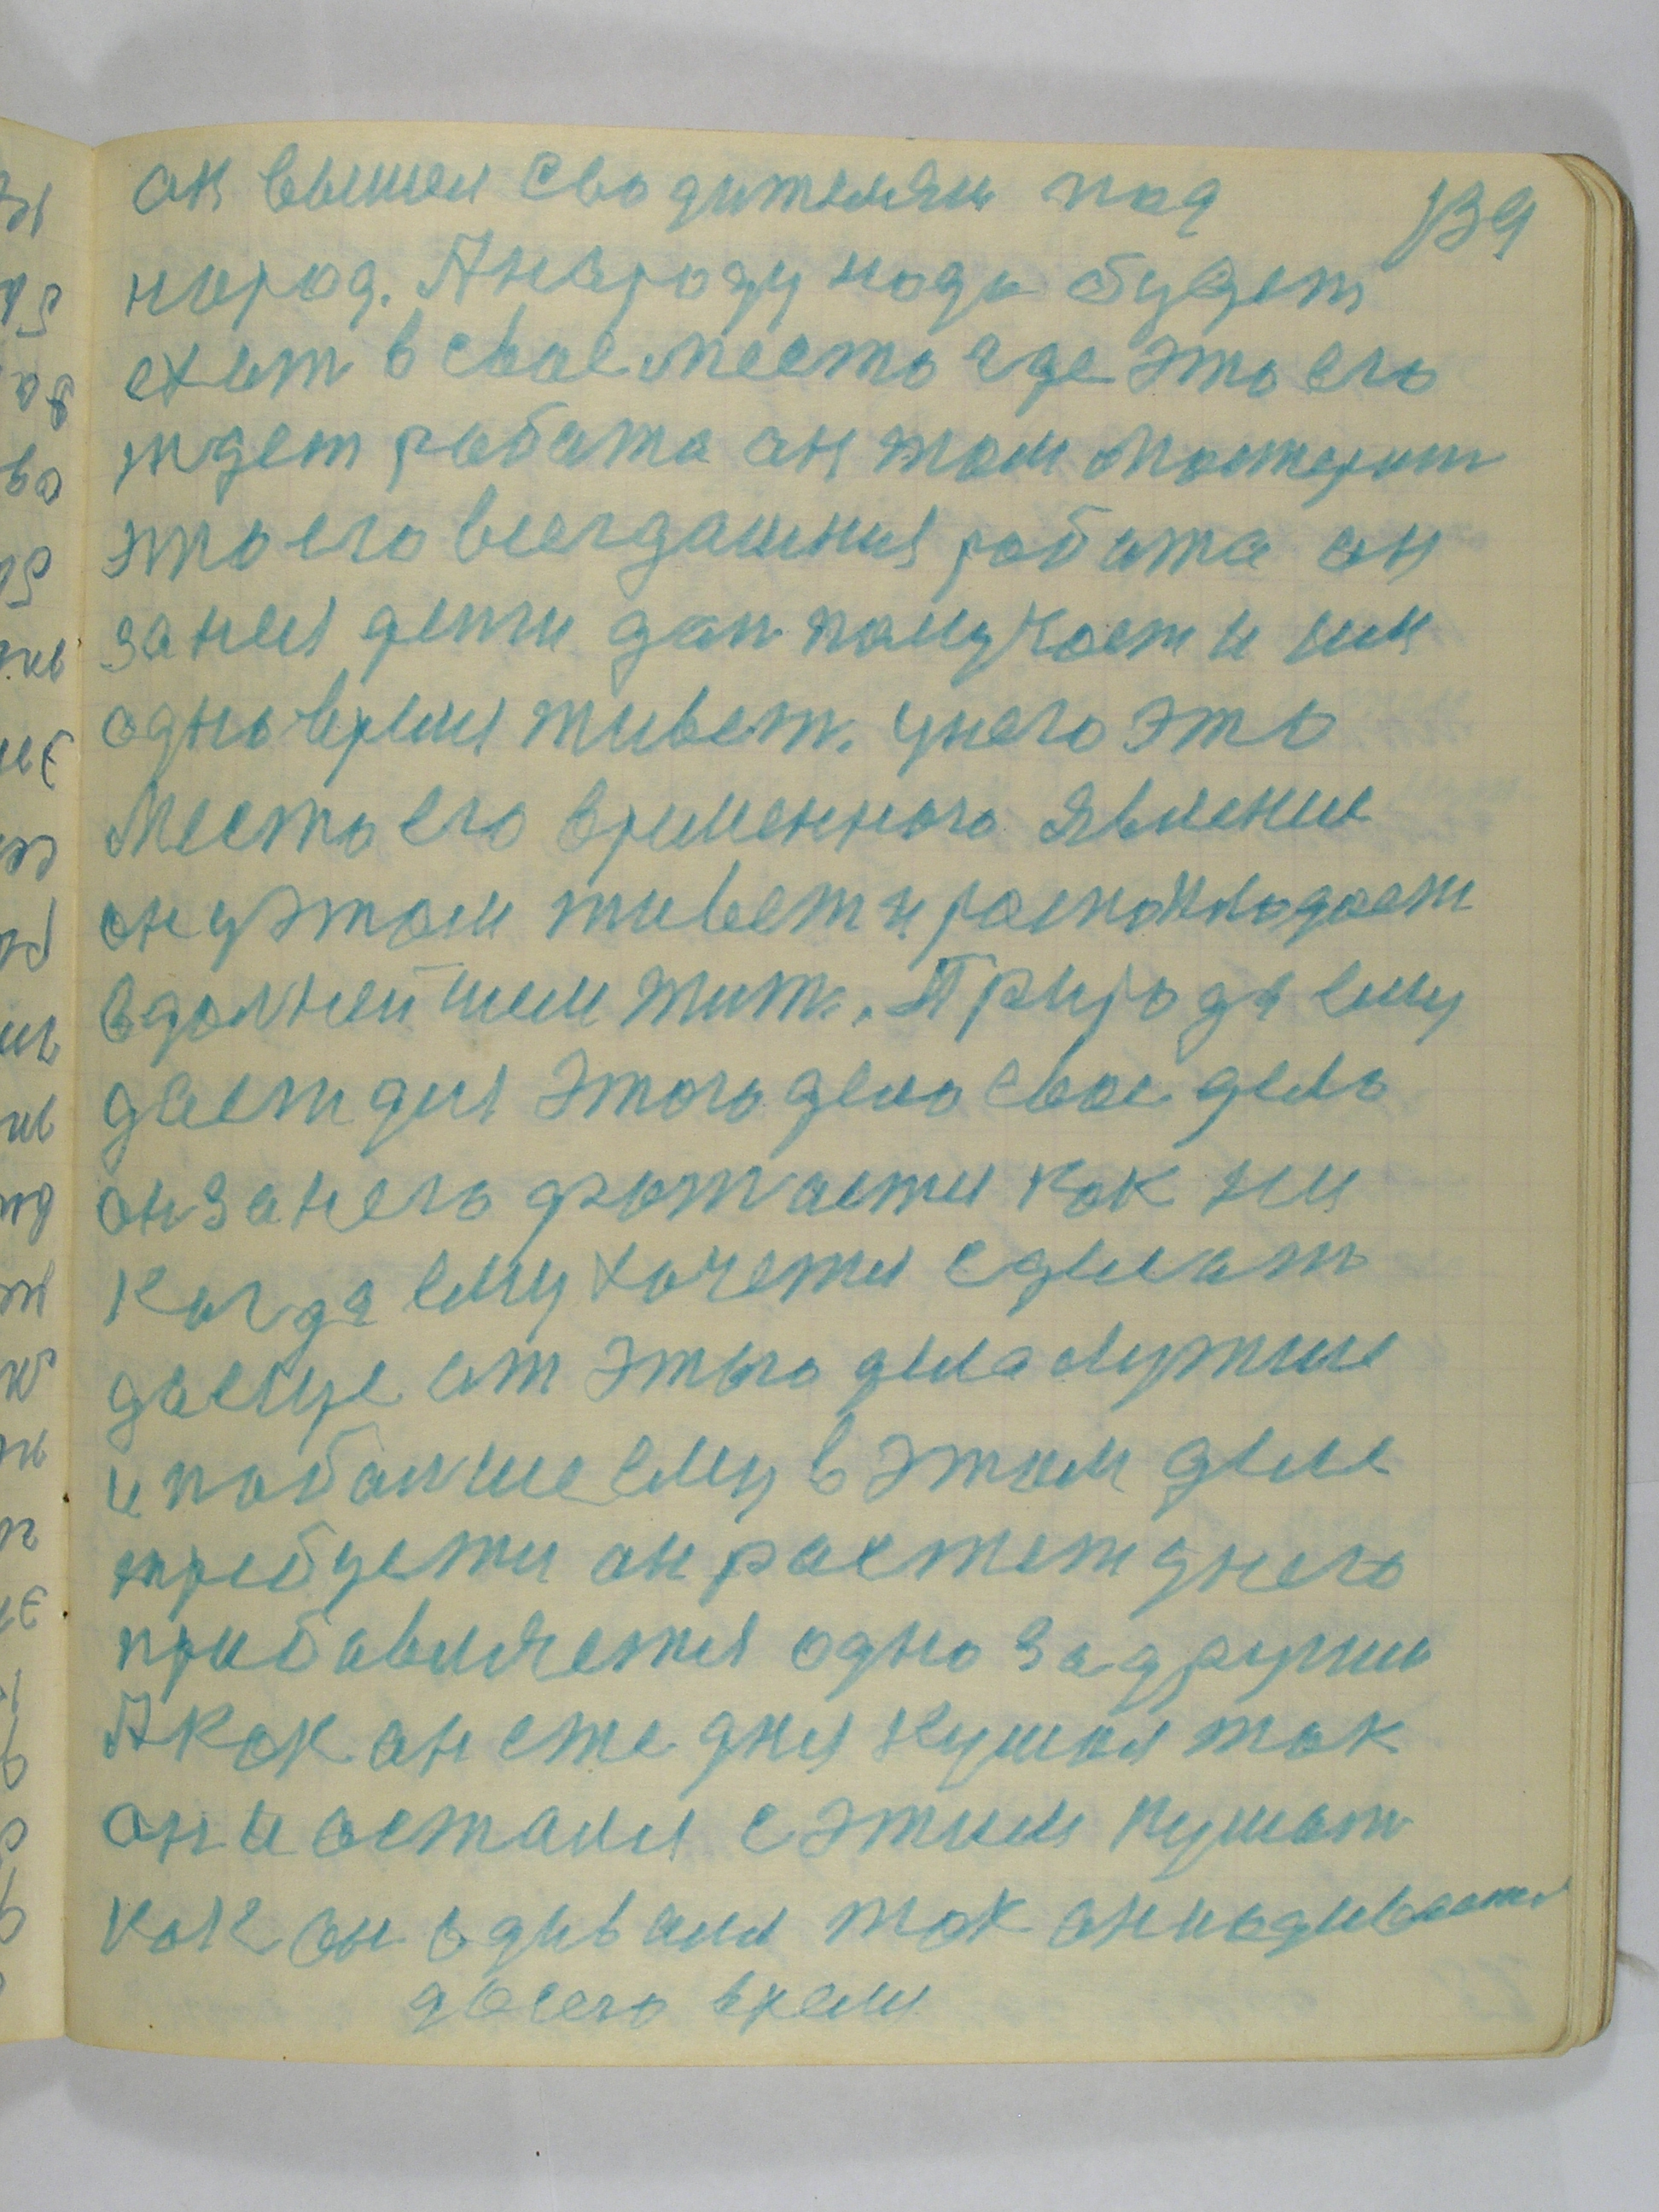 139
он вышел сводителям под
народ. Анароду нади будет
ехат в свое место где это его
ждет работа он том мастерит
это его всегдашния работа он
занея денги дап получает и им
одно время живет. унего это
Место его временного явление
он уэтом живет и распокладает
вдалнейшем жит. Природа ему
дает для этого дело свое дело
он занего држится как ни
когда ему хочется сделат
даеще от этого дела лутше
и побалше ему в этом деле
требуется он растет унего
прибавляется одно задругим
Акак он сегодня кушал так
он и осталя с этим кушат
как он одивался так они одивается
досего время